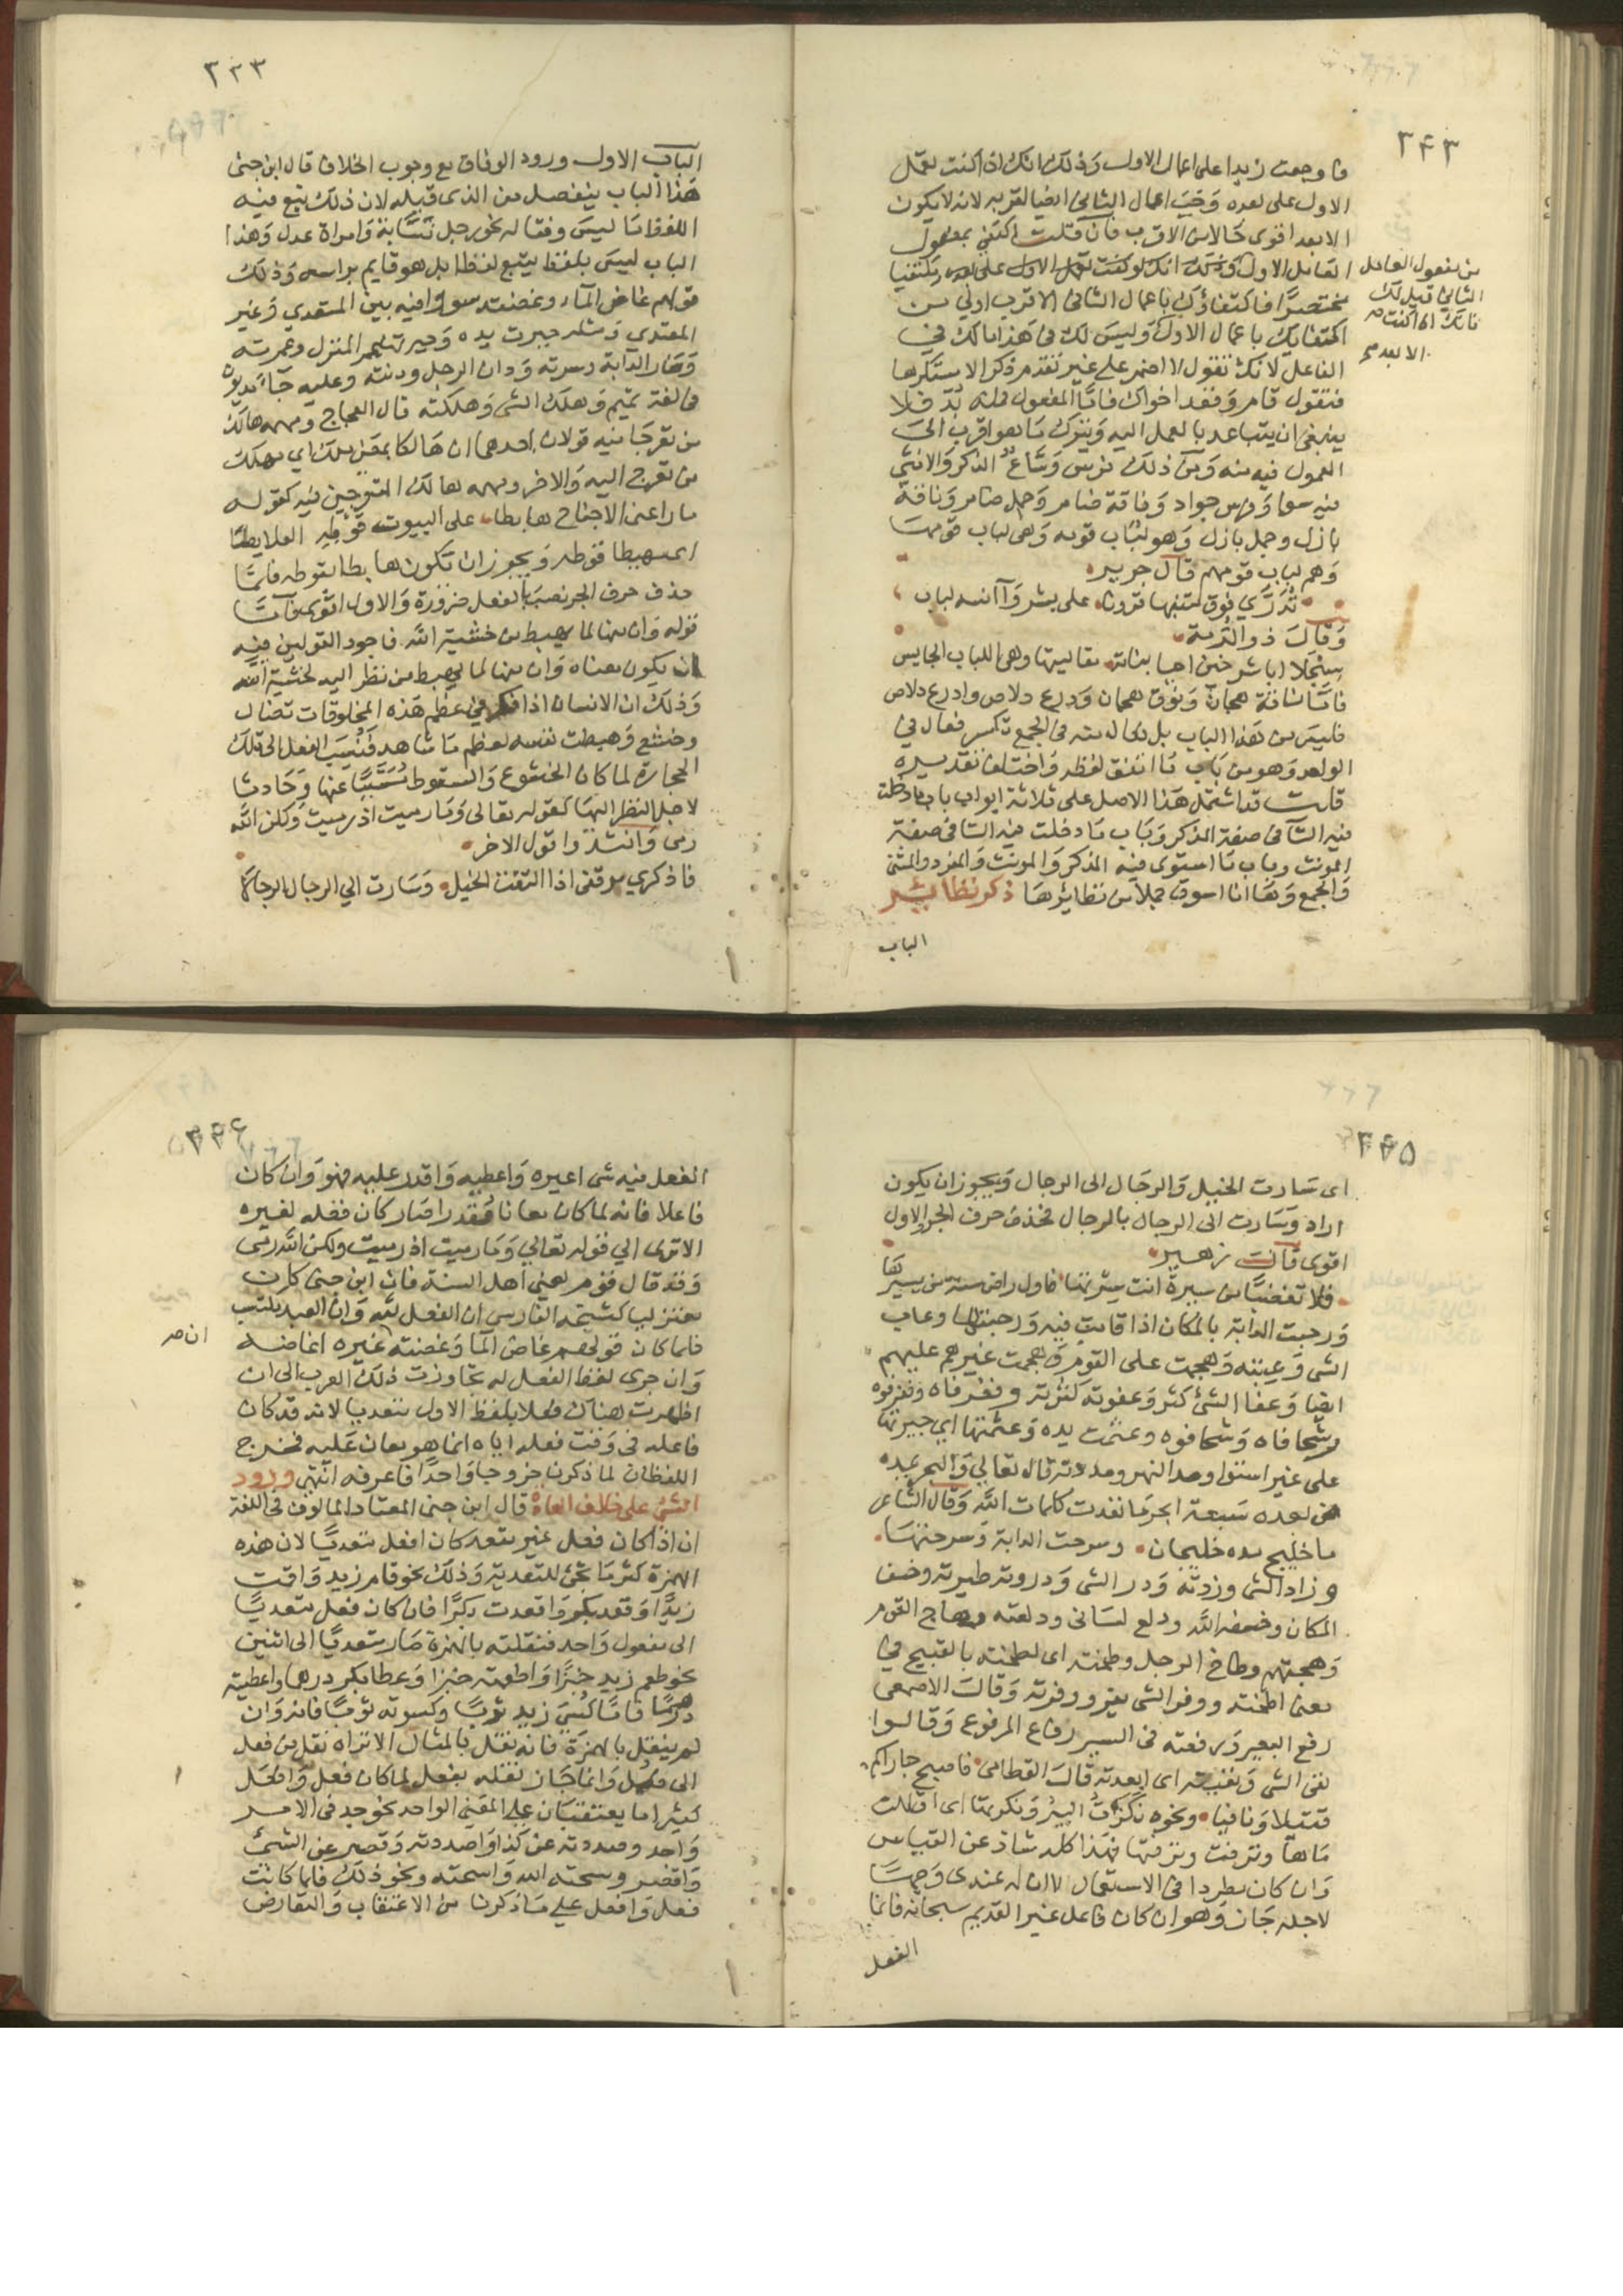 ٣٤٣
فاوجعت زيدا على اعمال الاول وذلك انك اذا كنت تعمل
الاول على بعده وجب اعمال الثاني ايضا لقربه لانه لا يكون
الابعد اقوى حالا من الاقرب فان قلت اكتفي بمفعول
العامل الاول
من مفعول العامل
الثاني قيل لك
فانك اذا كنت
الابعد صح
مختصرا فاكتفاؤك باعمال الثاني الاقرب اولى من
اكتفائك باعمال الاول وليس لك في هذا مالك في
الفاعل لانك تقول لا اضمر على غير تقدم ذكر الا مستكرها
فتقول قام وقعد اخواك فاما المفعول فمنه بد فلا
ينبغي ان يتباعد بالعمل اليه ويترك ما هو اقرب الى
المعمول فيه منه ومن ذلك فرس وساع الذكر والانثى
فيه سوا وفرس جواد وناقة ضامر وجمل ضامر وناقة
بازل وجمل بازل وهو لباب قومه وهي لباب قومها
وهم لباب قومهم قال جرير
تدري فوق متنيها قرونا على بشر وآنسة لباب
وقال ذو الرمة
سبحلا ابا شرخين احيا بناته مقاليتها وهي اللباب الحبايس
فاما ناقة هجان ونوق هجان ودرع دلاص وادرع دلاص
فليس من هذا الباب بل في الجمع تكسر فعال في
الواحد وهو من باب ما اتفق لفظه واختلف تقديره
قلت قد اشتمل هذا الاصل على ثلاثة ابواب باب ما دخلت
فيه التا في صفة المذكر وباب ما دخلت فيه التا في صفة
المونث وباب ما استوى فيه المذكر والمونث والمفرد والمثنى
والجمع وها انا اسوق جملا من نظائرها ذكر نظائر
الباب
٣٣٣
الباب الاول ورود الوفاق مع وجوب الخلاف قال ابن جني
هذا الباب ينفصل من الذي قبله لان ذلك تبع فيه
اللفظ ما ليس وفقا له نحو رجل نسابة وامراة عدل وهذا
الباب ليس بلفظ يتبع لفظا بل هو قايم براسه وذلك
قولهم غاض الماء وغضته سووا فيه بين المتعدي وغير
المتعدي ومثله جبرت يده وجبرتها وعمر المنزل وعمرته
وسار الدابة وسرته ودان الرجل ودنته وعليه جاء مديون
في لغة تميم وهلك الشي وهلكته قال العجاج ومهمه هالك
من تعرجا فيه قولان احدهما ان هالكا بمعنى مهلك اي مهلك
من تعرج اليه والاخر ومهمه هالك المتعرجين فيه كقوله
ما راعني الا جناح هابطا على البيوت قوطه العلابطا
اي مهبطا قوطه ويجوز ان تكون هابطا بقوطه فلما
حذف حرف الجر نصب بالفعل ضرورة والاول اقوى فاما
قوله وان منها لما يهبط من خشية الله فاجود القولين فيه
ان يكون معناه وان منها لما يهبط من نظر اليه لخشية الله
وذلك ان الانسان اذا فكر في عظم هذه المخلوقات تضال
وخشع وهبطت نفسه لعظم ما شاهد فنسب الفعل الى تلك
الحجارة لما كان الخشوع والسقوط مسببا عنها وحادثا
لاجل النظر اليها كقوله تعالى وما رميت اذ رميت ولكن الله
رمى وانشدوا قول الاخر
فاذكري موقفي اذا التقت الخيل وسارت الي الرجال الرجالا
٣٤٥
اي سارت الخيل والرجال الى الرجال ويجوز ان يكون
اراد وسارت الى الرجال بالرجال فحذف حرف الجر والاول
اقوى قالت زهير
فلا تغضبا من سيرة انت سرتها فاول راض سنة من يسيرها
ورجنت الدابة بالمكان اذا اقامت فيه ورجنتها وعاب
الشي وعبته وهجمت على القوم وهجمت غيرهم عليهم
ايضا وعفا الشي كثر وعفوته كثرته وفغر فاه وفغر فوه
وشحا فاه وشحا فوه وعثمت يده وعثمتها اي جبرتها
على غير استوا ومد النهر ومددته قال تعالى والبحر يمده
من بعده سبعة ابحر ما نفدت كلمات الله وقال الشاعر
ما خليج مده خليجان وسرحت الدابة وسرحتها
وزاد الشي وزدته وذر الشي وذروته طيرته وخسف
المكان وخسفه الله ودلع لساني ودلعته وهاج القوم
وهجتهم وطاخ الرجل وطخته اي لطخته بالقبيح في
معنى اطخته ووفر الشي يفر ووفرته وقال الاصمعي
رفع البعير ورفعته في السير رفاع المرفوع وقالوا
نفى الشي ونفيته اي ابعدته قال القطامي فاصبح جاراكم
قتيلا ونافيا ونحوه نكزت البئر ونكزتها اي اقللت
ماءها ونزفت ونزفتها فهذا كله شاذ عن القياس
وان كان مطردا في الاستعمال الا ان له عندي وجها
لاجله جاز وهو ان كان فاعل غير القديم سبحانه فانما
الفعل
٣٤٤
الفعل فيه شي اعيره واعطيه واقدر عليه فهو وان كان
فاعلا فانه لما كان معانا مقدرا صار كان فعله لغيره
الا ترى الي قوله تعالي وما رميت اذ رميت ولكن الله رمى
وقد قال قوم يعني اهل السنة فان ابن جني كان
معتزليا كشيخه الفارسي ان الفعل لله وان العبد مكتسب
فلما كان قولهم غاض الما وغضته غيره اغاضه
ان صر
وان جرى لفظ الفعل له تجاوزت ذلك العرب الى ان
اظهرت هناك فعلا بلفظ الاول متعديا لانه قد كان
فاعله في وقت فعله اياه انما هو معان عليه فخرج
اللفظان لما ذكرنا خروجا واحدا فاعرفه انتهى ورود
الشي على خلاف العادة قال ابن جني المعتاد المالوف في اللغة
ان اذا كان فعل غير متعد كان افعل متعديا لان هذه
الهمزة كثر ما تجي للتعدية وذلك نحو قام زيد واقمت
زيدا وقعد بكر واقعدت بكرا فان كان فعل متعديا
الى مفعول واحد فنقلته بالهمزة صار متعديا الى اثنين
نحو طعم زيد خبزا واطعمته خبزا وعطا بكر درهما واعطيته
درهما فاما كسي زيد ثوبا وكسوته ثوبا فانه وان
لم ينقل بالهمزة فانه نقل بالمثال الا تراه نقل من فعل
الى فعل وانما جاز نقله بفعل لما كان فعل وافعل
كثيرا ما يعتقبان على المعنى الواحد نحو جد في الامر
واجد وصددته عن كذا واصددته وقصر عن الشي
واقصر وسحته الله واسحته ونحو ذلك فلما كانت
فعل وافعل علي ما ذكرنا من الاعتقاب والتعارض